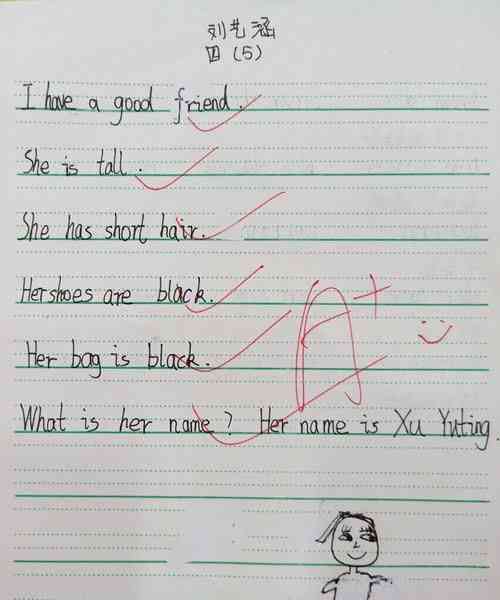 刘艺涵
四（5）
I have a good friend.
She is tall.
She has short hair.
Her shoes are black.
Her bag is black.
What is her name? Her name is Xu Yuting.
A+